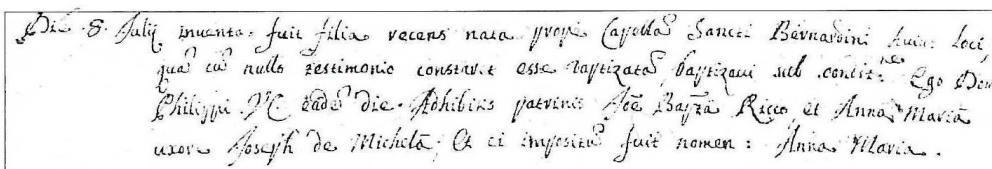 Die 8. Julij inventa fuit filia recens nata prope Capellã Sancti Bernardini huius loci,
quã cũ nullo testimonio constaret esse baptizatã, baptizavi sub condit:ne Ego Don
Philippi V.C. eadẽ die. Adhibitis patrinis Jõe Bapta Ricco, et Anna Maria
uxore Joseph de Michelã. Et ei impositũ fuit nomen: Anna Maria.